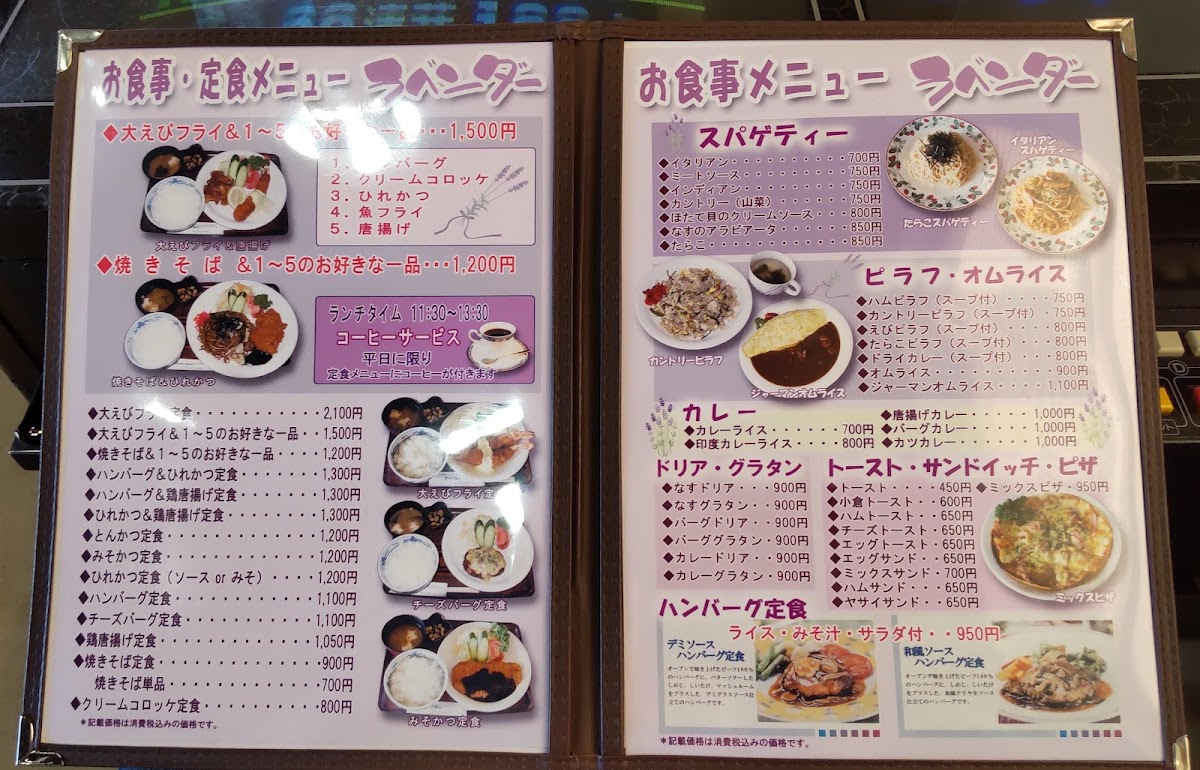 お食事・定食メニュー ラベンダー
◆大えびフライ&1〜5のお好き・・・1,500円
大えびフライ&唐揚げ
バーグ
2. クリームコロッケ
3. ひれかつ
4. 魚フライ
5. 唐揚げ
◆焼きそば &1〜5のお好きな一品・・・1,200円
焼きそば&ひれかつ
ランチタイム 11:30〜13:30
コーヒーサービス
平日に限り
定食メニューにコーヒーが付きます
◆大えびフライ定食・・・・・・・・・・・2,100円
◆大えびフライ&1〜5のお好きな一品・・1,500円
◆焼きそば&1〜5のお好きな一品・・・・1,200円
◆ハンバーグ&ひれかつ定食・・・・・・・1,300円
◆ハンバーグ&鶏唐揚げ定食・・・・・・・1,300円
◆ひれかつ&鶏唐揚げ定食・・・・・・・・1,300円
◆とんかつ定食・・・・・・・・・・・・・1,200円
◆みそかつ定食・・・・・・・・・・・・・1,200円
◆ひれかつ定食(ソース or みそ)・・・・1,200円
◆ハンバーグ定食・・・・・・・・・・・・1,100円
◆チーズバーグ定食・・・・・・・・・・・1,100円
◆鶏唐揚げ定食・・・・・・・・・・・・・1,050円
◆焼きそば定食・・・・・・・・・・・・・900円
焼きそば単品・・・・・・・・・・・・700円
◆クリームコロッケ定食・・・・・・・・・800円
*記載価格は消費税込みの価格です。
大えびフライ定
チーズバーグ定食
みそかつ定食
お食事メニュー ラベンダー
スパゲティー
◆イタリアン・・・・・・・・・・・700円
◆ミートソース・・・・・・・・・・750円
◆インディアン・・・・・・・・・・750円
◆カントリー(山菜)・・・・・・・750円
◆ほたて貝のクリームソース・・・800円
◆なすのアラビアータ・・・・・・850円
◆たらこ・・・・・・・・・・・・・850円
たらこスパゲティー
イタリアン
スパゲティー
ピラフ・オムライス
◆ハムピラフ(スープ付)・・・・750円
◆カントリーピラフ(スープ付)・750円
◆えびピラフ(スープ付)・・・・800円
◆たらこピラフ(スープ付)・・・800円
◆ドライカレー(スープ付)・・・800円
◆オムライス・・・・・・・・・・・900円
◆ジャーマンオムライス・・・・1,100円
カントリーピラフ
ジャーマンオムライス
カレー
◆カレーライス・・・・・・・700円
◆印度カレーライス・・・・800円
◆唐揚げカレー・・・・・1,000円
◆バーグカレー・・・・・1,000円
◆カツカレー・・・・・・1,000円
ドリア・グラタン
◆なすドリア・・・900円
◆なすグラタン・・900円
◆バーグドリア・・900円
◆バーググラタン・900円
◆カレードリア・・900円
◆カレーグラタン・900円
トースト・サンドイッチ・ピザ
◆トースト・・・・450円
◆小倉トースト・・600円
◆ハムトースト・・650円
◆チーズトースト・650円
◆エッグトースト・650円
◆エッグサンド・・650円
◆ミックスサンド・700円
◆ハムサンド・・・650円
◆ヤサイサンド・・650円
◆ミックスピザ・950円
ミックスピザ
ハンバーグ定食
ライス・みそ汁・サラダ付・・950円
デミソース
ハンバーグ定食
オーブンで焼き上げたビーフ100%
のハンバーグに、バターソテーした
しめじ、しいたけ、マッシュルーム
をプラスした、デミグラスソース仕
立てのハンバーグです。
和風ソース
ハンバーグ定食
オーブンで焼き上げたビーフ100%
のハンバーグに、しめじ、しいたけ
をプラスした、和風テリヤキソース
仕立てのハンバーグです。
*記載価格は消費税込みの価格です。